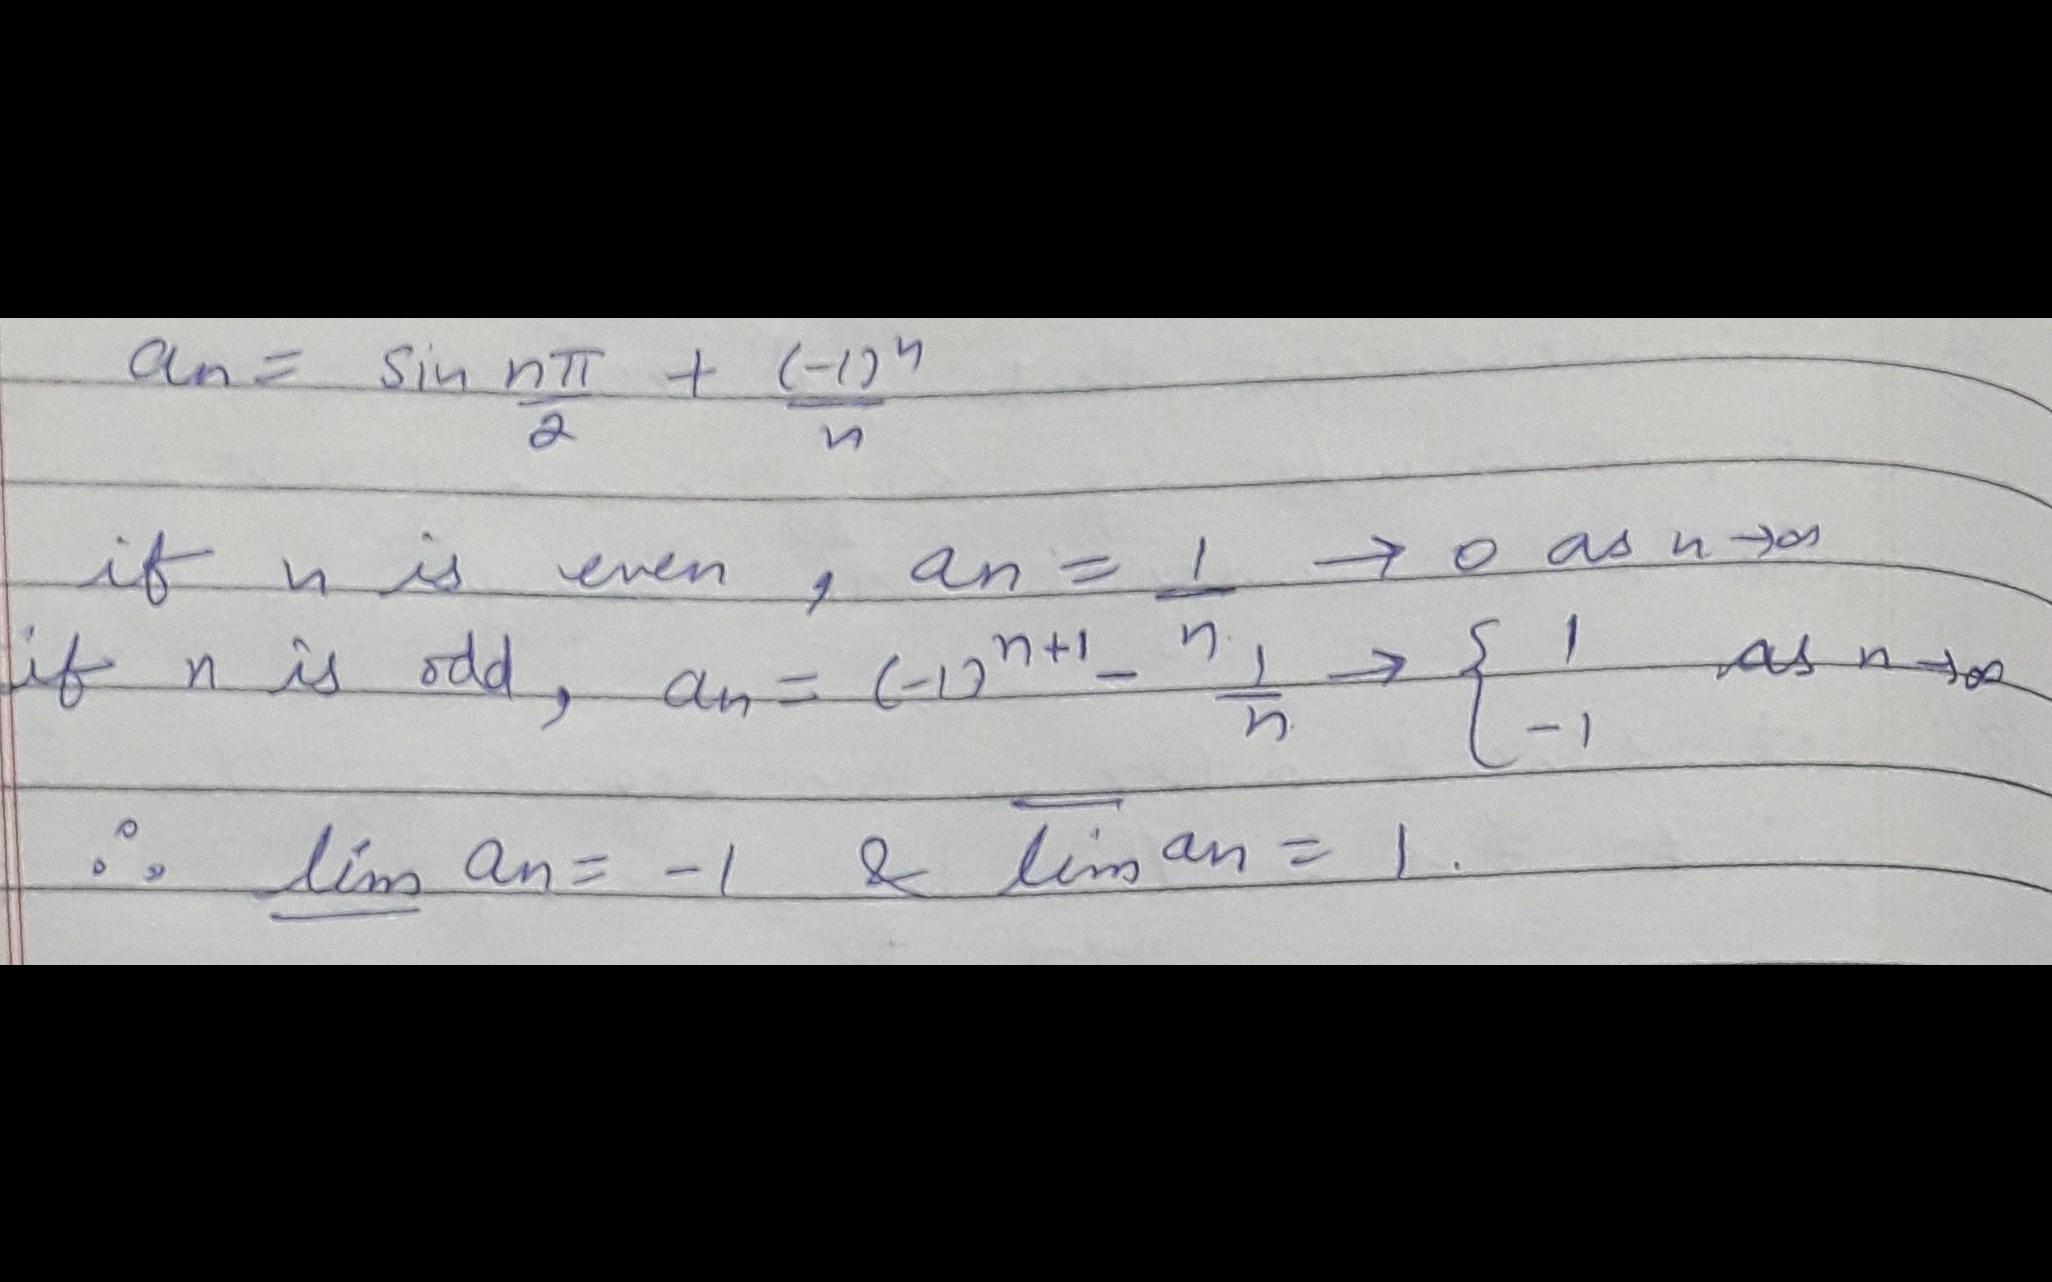 an = sin nπ/2 + (-1)^n/n
if n is even, an = 1/n → 0 as n→∞
if n is odd, an = (-1)^{n+1} - 1/n → { 1 -1 as n→∞
∴ \underline{lim} an = -1 & \overline{lim} an = 1.